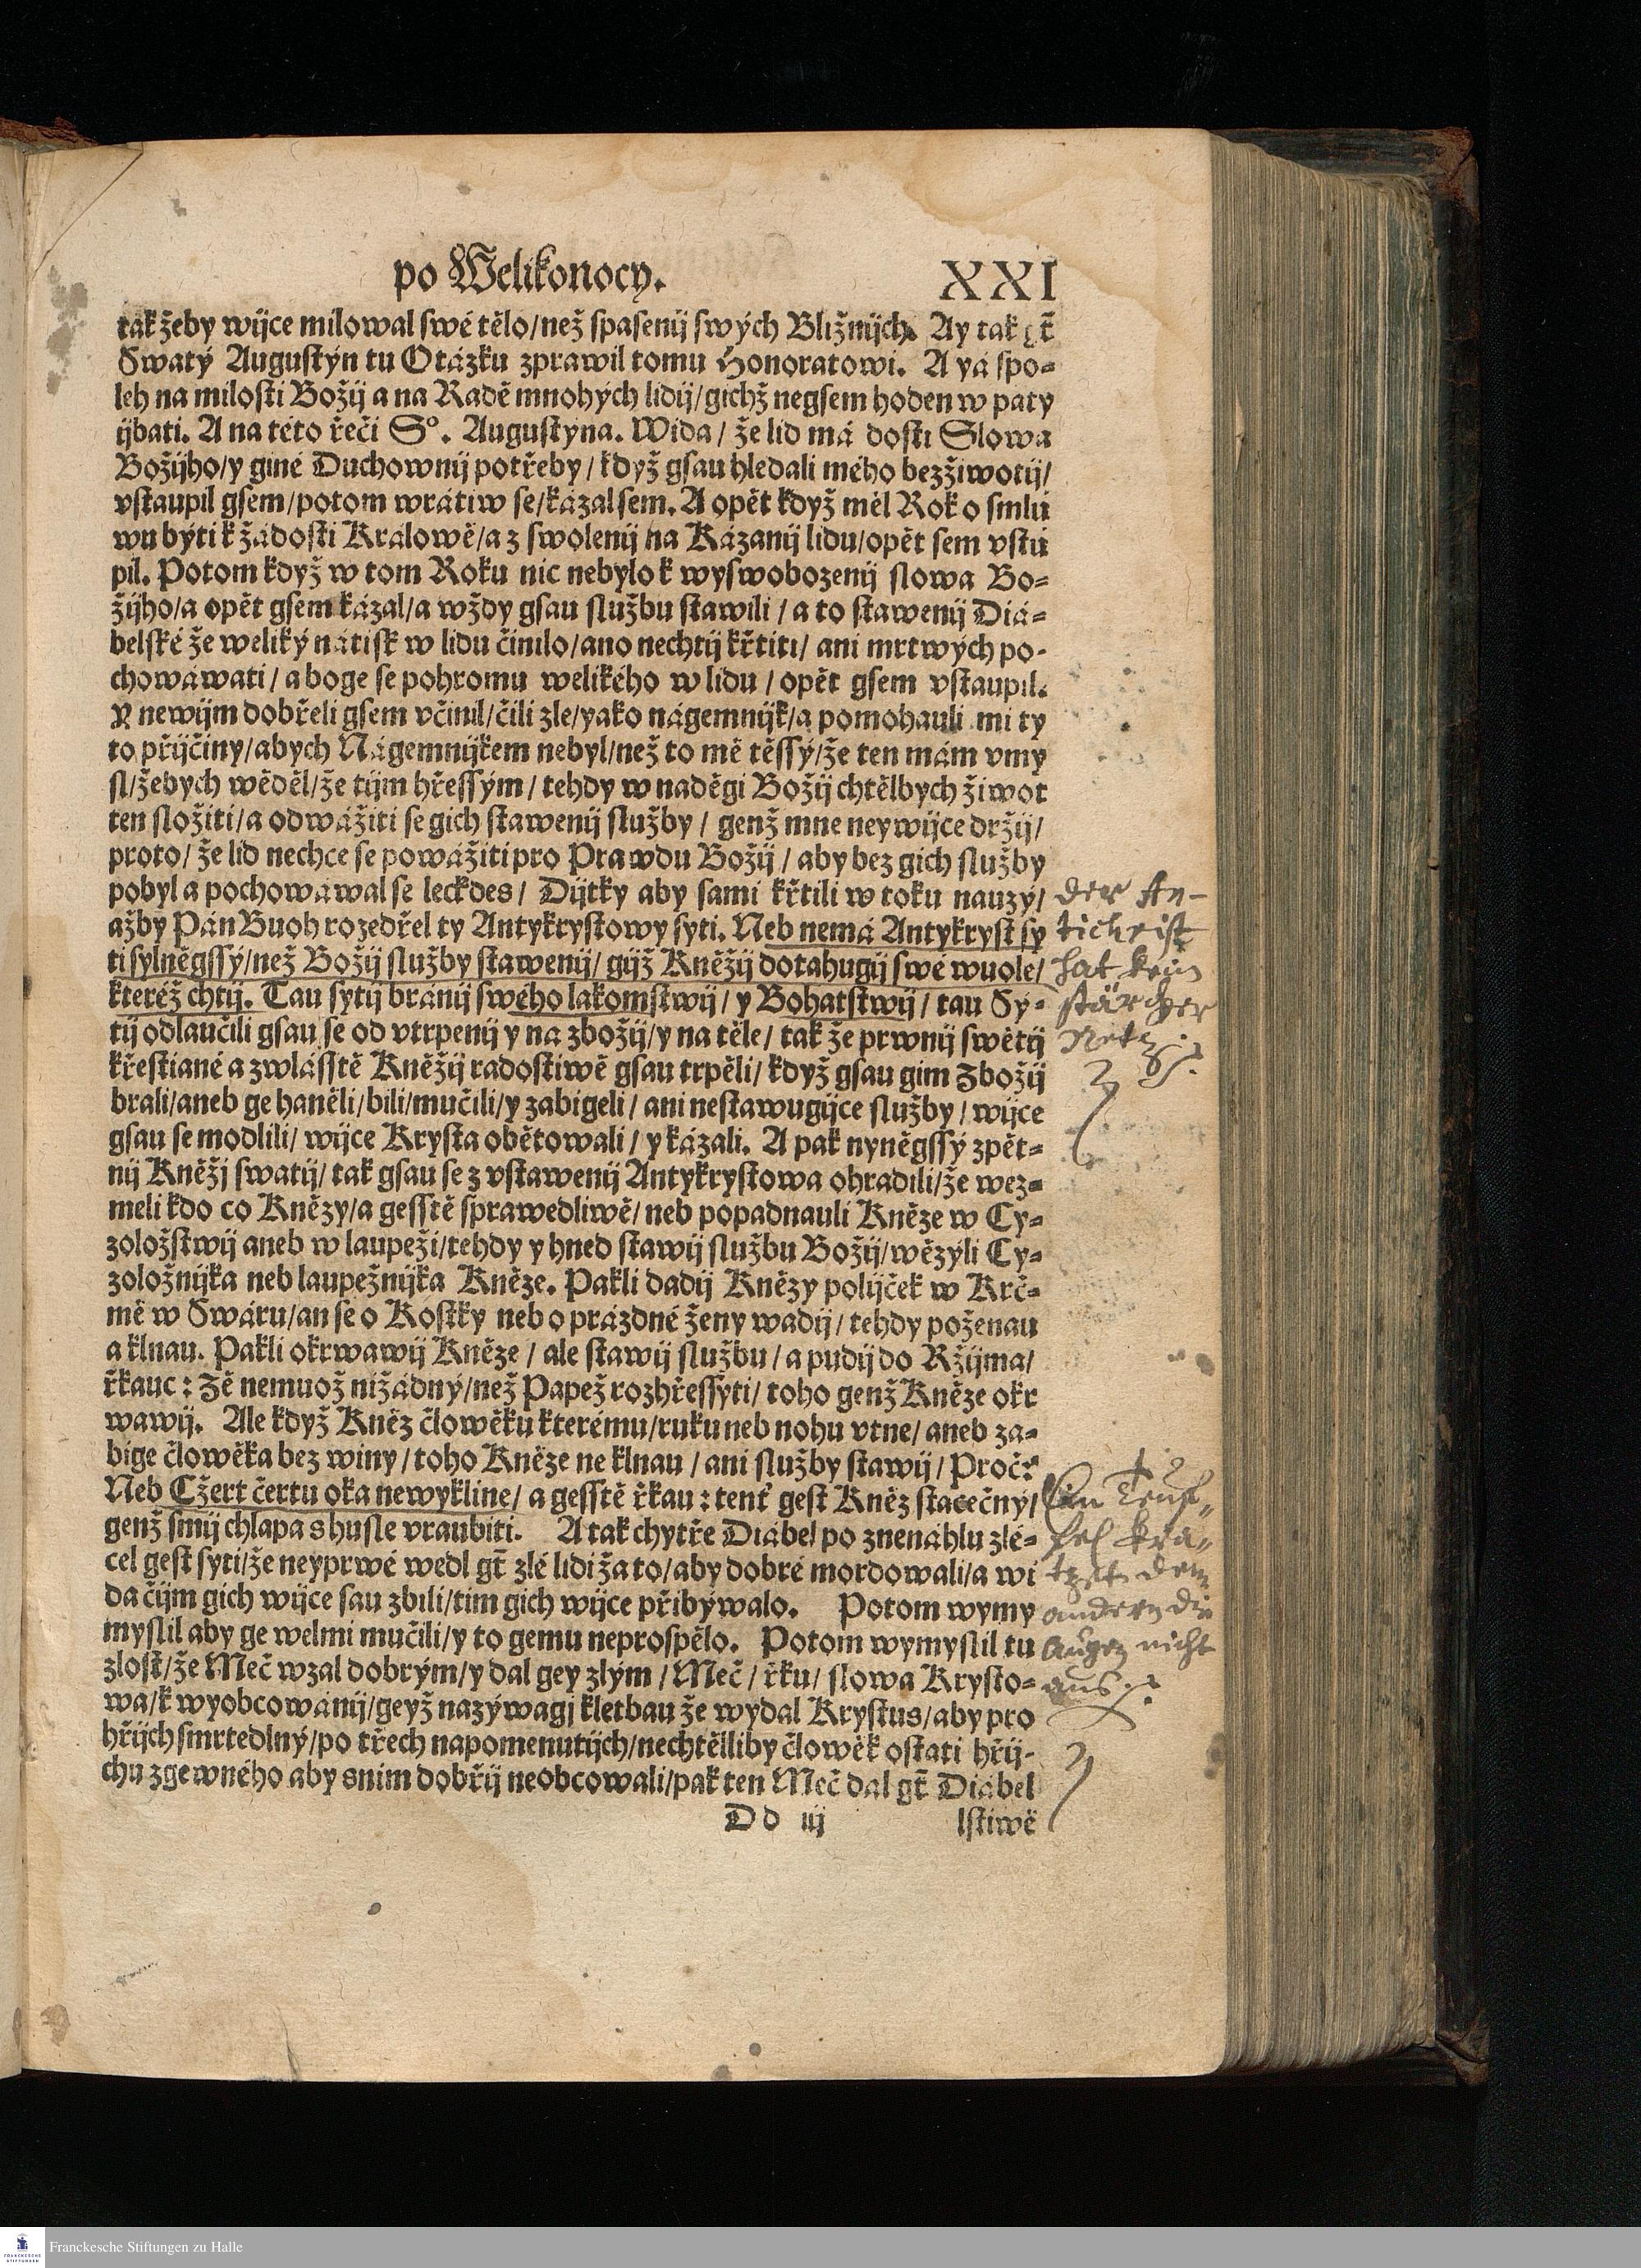 po Welikonocy. XXI
tak žeby wijce milowal swé tělo/než spasenij swých Bližnijch. Ay tak gt̃
Swatý Augustýn tu Otázku zprawil tomu Honoratowi. A yá spo-
leh na milosti Božij a na Radě mnohých lidij/gichž negsem hoden w paty
ijbati. A na této řeči S°. Augustýna. Wida/ že lid má dosti Slowa
Božijho/y giné Duchownij potřeby/ když gsau hledali mého bezžiwotij/
vstaupil gsem/potom wrátiw se/kázal sem. A opět když měl Rok o smlú
wu býti k žádosti Králowě/a z swolenij na Kázanij lidu/opět sem vstú
pil. Potom když w tom Roku nic nebylo k wyswobozenij slowa Bo-
žijho/a opět gsem kázal/a wždy gsau službu stawili/ a to stawenij Diá-
belské že weliký nátisk w lidu činilo/ano nechtij křtiti/ ani mrtwých po-
chowáwati/ a boge se pohromu welikého w lidu/ opět gsem vstaupil.
Y newijm dobřeli gsem včinil/čili zle/yako nágemnijk/a pomohauli mi ty
to přijčiny/abych Nágemnijkem nebyl/než to mě těssý/že ten mám vmy
sl/žebych wěděl/že tijm hřessým/ tehdy w naděgi Božij chtělbych žiwot
ten složiti/a odwážiti se gich stawenij služby/ genž mne neywijce držij/
proto/ že lid nechce se powážiti pro Prawdu Božij/ aby bez gich služby
pobyl a pochowáwal se leckdes/ Dijtky aby sami křtili w toku nauzý/
ažby Pán Buoh rozedřel ty Antykrystowy syti. Neb nemá Antykryst sý
ti sylněgssý/než Božij služby stawenij/ gijž Kněžij dotahugij swé wuole/
kteréž chtij. Tau sytij bránij swého lakomstwij/ y Bohatstwij/ tau Sy-
tij odlaučili gsau se od vtrpenij y na zbožij/y na těle/ tak že prwnij swětij
křestiané a zwlásstě Kněžij radostiwě gsau trpěli/ když gsau gim Zbožij
brali/aneb ge haněli/bili/mučili/y zabigeli/ ani nestawugijce služby/ wijce
gsau se modlili/ wijce Krysta obětowali/ y kázali. A pak nyněgssý zpět-
nij Kněžj swatij/ tak gsau se z vstawenij Antykrystowa ohradili/že wez-
meli kdo co Knězy/a gesstě sprawedliwě/ neb popadnauli Kněze w Cy-
zoložstwij aneb w laupeži/tehdy y hned stawij službu Božij/wězýli Cy-
zoložnijka neb laupežnijka Kněze. Pakli dadij Knězy polijček w Krč-
mě w Swáru/an se o Kostky neb o prázdné ženy wadij/ tehdy poženau
a klnau. Pakli okrwawij Kněze/ ale stawij službu/ a pudij do Ržijma/
řkauc: Zě nemuož nižádný/než Papež rozhřessyti/ toho genž Kněze okr
wawij. Ale když Kněz člowěku kterému/ruku neb nohu vtne/ aneb za-
bige člowěka bez winy/ toho Kněze ne klnau/ ani služby stawij/ Proč?
Neb Cžert čertu oka newykline/ a gesstě řkau: tenť gest Kněz statečný/
genž smij chlapa s husle vraubiti. A tak chytře Diábel po znenáhlu zlé-
cel gest syti/že neyprwé wedl gt̃ zlé lidi ža to/aby dobré mordowali/a wi
da čijm gich wijce sau zbili/tim gich wijce přibýwalo. Potom wymy
myslil aby ge welmi mučili/y to gemu neprospělo. Potom wymyslil tu
zlost/že Meč wzal dobrým/y dal gey zlým/ Meč/ řku/ slowa Krysto-
wa/k wyobcowánij/geyž nazýwagj kletbau že wydal Krystus/aby pro
hřijch smrtedlný/po třech napomenutijch/nechtělliby člowěk ostati hřij-
chu zgewného aby s nim dobřij neobcowali/pak ten Meč dal gt̃ Diábel
Dd iij lstiwě
der An-
tichrist
hat kein
stärcker
Netz.
Ein Teuf-
fel kra-
tzet dem
andern die
augen nicht
aus.
Franckesche Stiftungen zu Halle